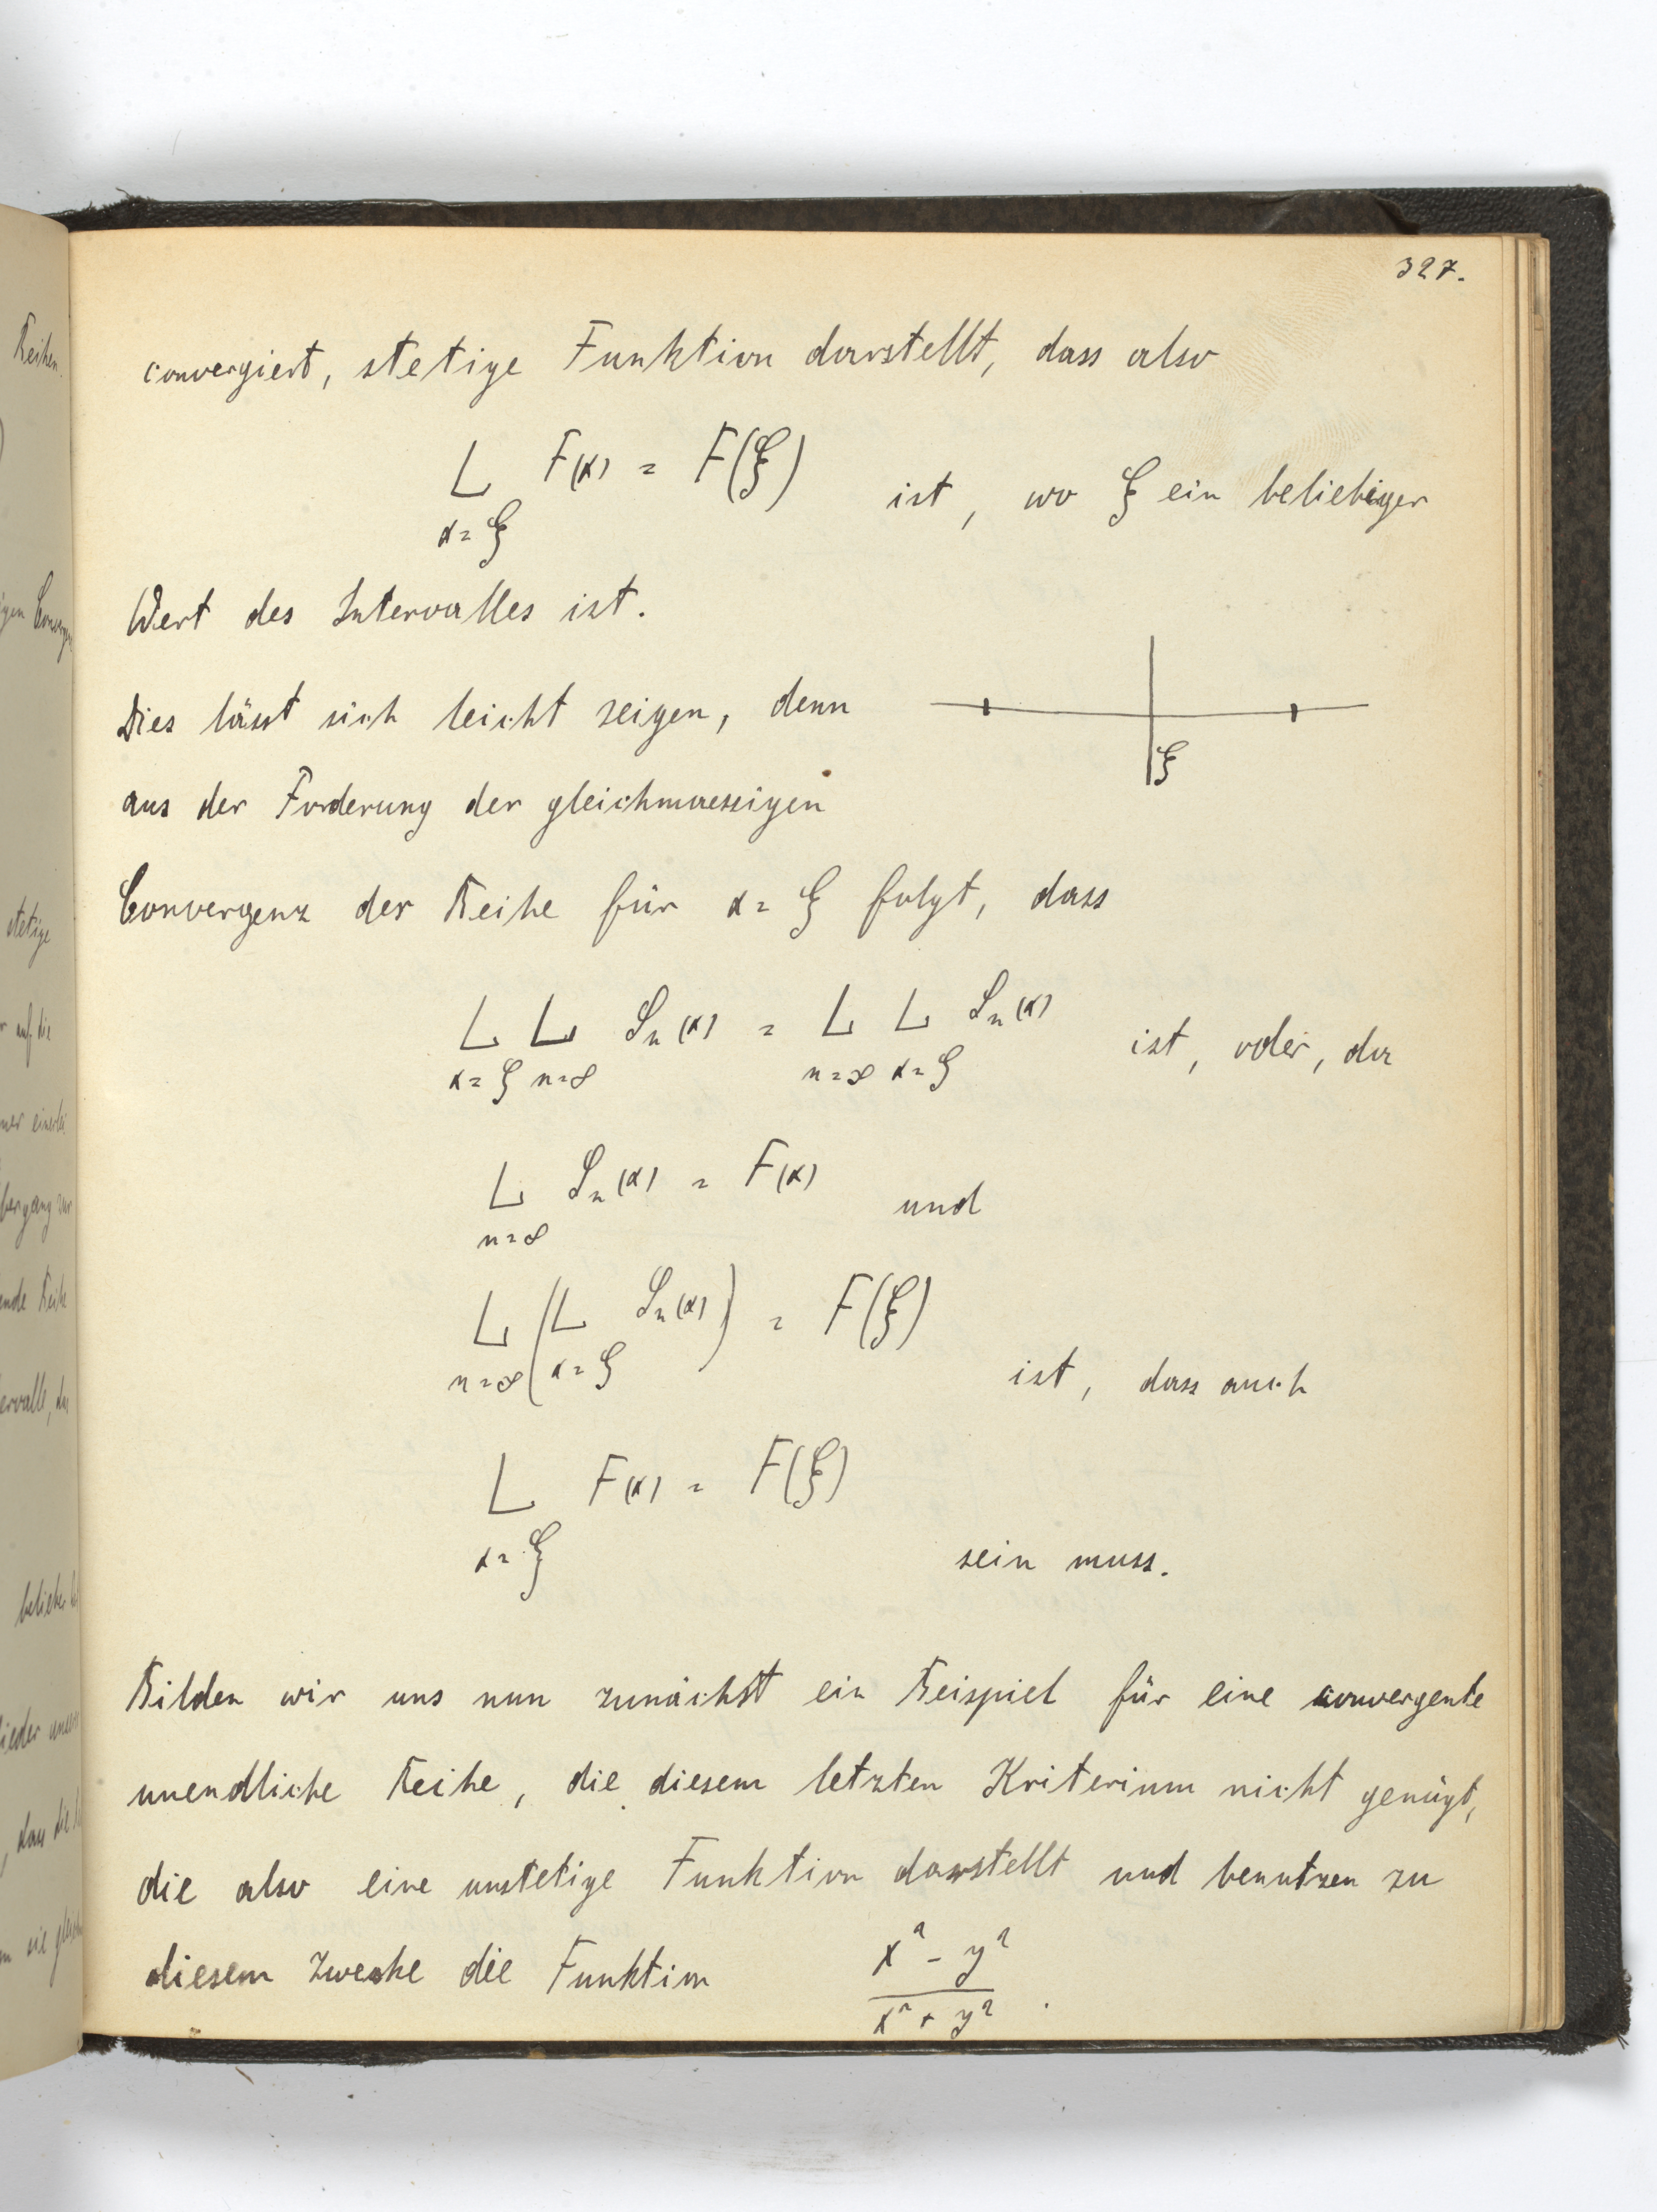 327.
convergiert, stetige Funktion darstellt, dass also
L F(x) = F(ξ) ist, wo ξ ein beliebiger
x=ξ
Wert des Intervalles ist.
Dies lässt sich leicht zeigen, denn
ξ
aus der Forderung der gleichmaessigen
Convergenz der Reihe für x=ξ folgt, dass
L L Sn(x) = L L Sn(x) ist, oder, da
x=ξ n=∞ n=∞ x=ξ
L Sn(x) = F(x) und
n=∞
L (L Sn(x)) = F(ξ) ist, dass auch
n=∞ x=ξ
L F(x) = F(ξ)
x=ξ sein muss.
Bilden wir uns nun zunächst ein Beispiel für eine convergente
unendliche Reihe, die diesem letzten Kriterium nicht genügt,
die also eine unstetige Funktion darstellt und benutzen zu
diesem Zwecke die Funktion x² - y²
x² + y² .
Reihen.
stetige
auf die